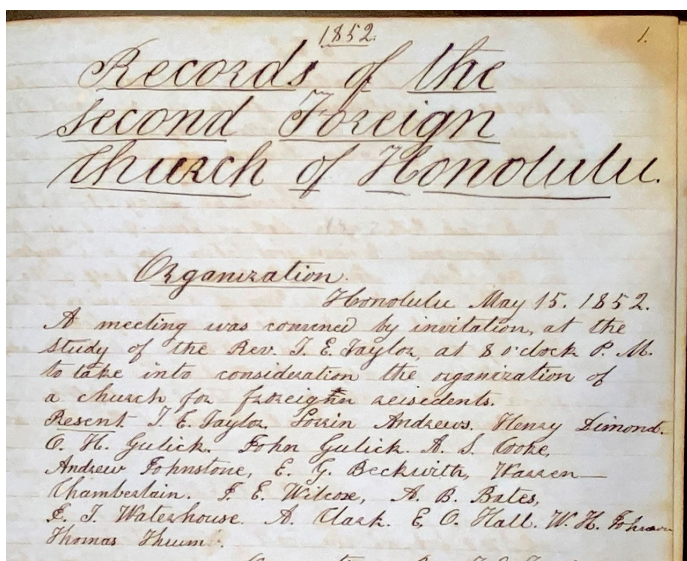 1852.
1.
Records of the
Second Foreign
Church of Honolulu.
Organization.
Honolulu May 15. 1852.
A meeting was convened by invitation, at the
study of the Rev. T. E. Taylor, at 8 o'clock P. M.
to take into consideration the organization of
a church for foreign residents.
Present. T. E. Taylor. Lorrin Andrews. Henry Dimond.
O. H. Gulick. John Gulick. A. S. Cooke,
Andrew Johnstone, E. G. Beckwith, Warren
Chamberlain. F. E. Wilcox, A. B. Bates,
J. T. Waterhouse. A. Clark. E. O. Hall. W. H. Johnson
Thomas Thrum.